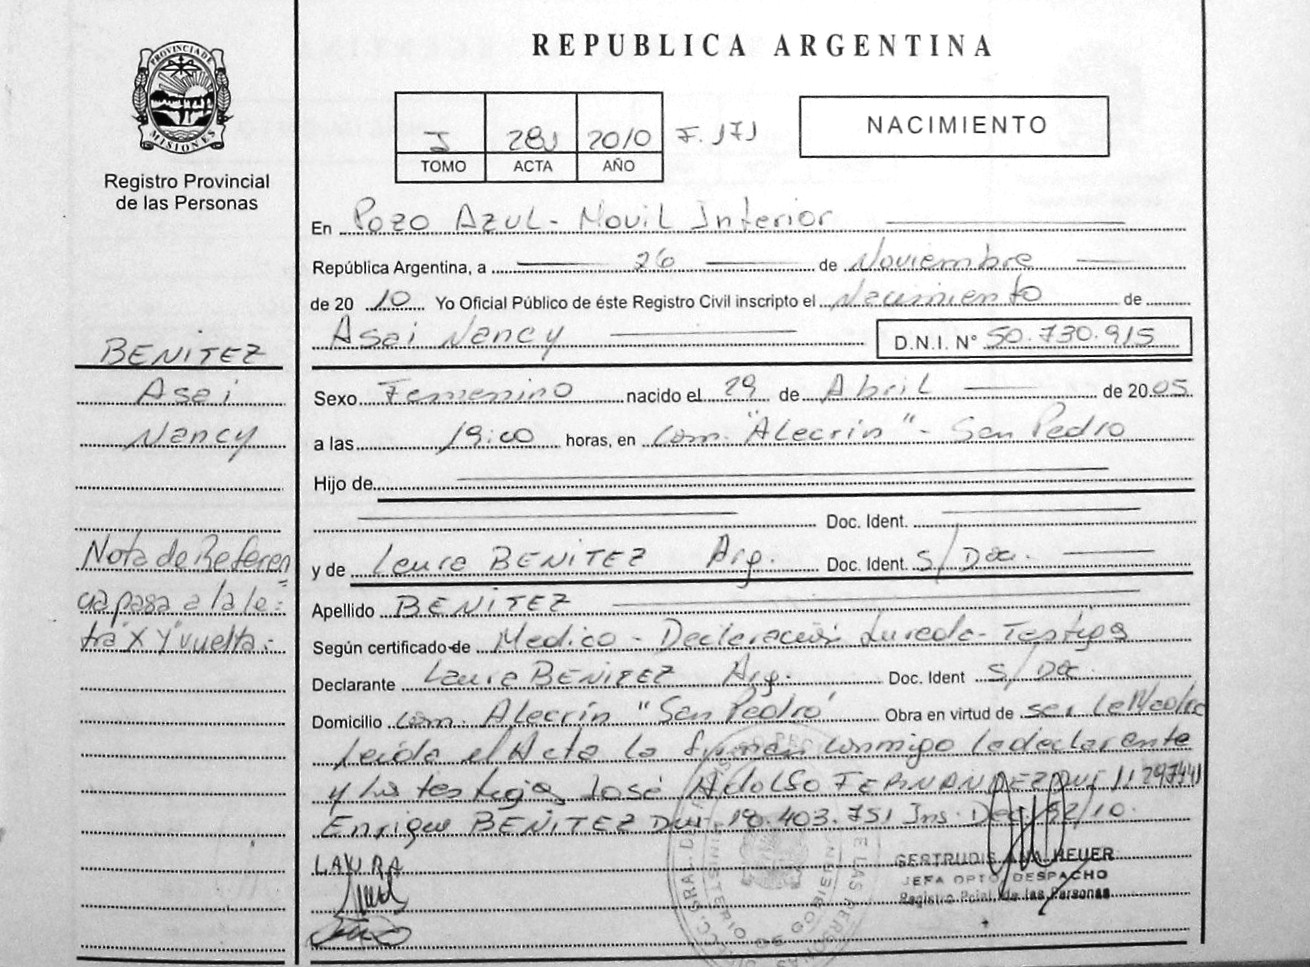 REPUBLICA ARGENTINA
PROVINCIA DE
MISIONES
Registro Provincial
de las Personas
I 281 2010 F. 171
TOMO ACTA AÑO
NACIMIENTO
En Pozo AZUL - Movil Interior
República Argentina, a 26 de Noviembre
de 20 10 Yo Oficial Público de éste Registro Civil inscripto el Nacimiento de
Asai Nancy D.N.I. N° 50.730.915
BENITEZ
Asai
Nancy
Sexo Femenino nacido el 29 de Abril de 20 05
a las 19:00 horas, en Com. "Alecrin" - San Pedro
Hijo de
Doc. Ident.
Nota de Referen
cia pasa a la le=
tra "X Y" vuelta.-
y de Laura BENITEZ Arg. Doc. Ident. S/Doc.
Apellido BENITEZ
Según certificado de Medico - Declaración Jurada - Testigos
Declarante Laura BENITEZ Arg. Doc. Ident S/Doc.
Domicilio Com. Alecrín "San Pedro" Obra en virtud de ser la Madre
Leida el Acta la firman conmigo la declarante
y los testigos José Adolfo FERNANDEZ DNI
Enrique BENITEZ DNI 18.403.751 Ins. Dec. 92/10.
LAURA
GERTRUDIS ANA HEUER
JEFA DPTO. DESPACHO
Registro Pcial. de las Personas